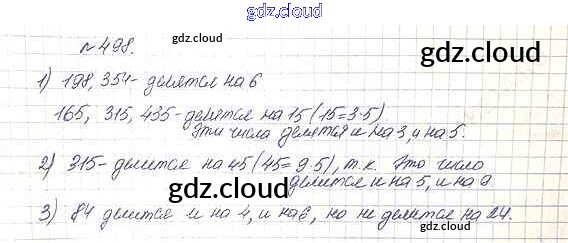 gdz.cloud
№498.
gdz.cloud
gdz.cloud
1) 198, 354 - делятся на 6
165, 315, 435 - делятся на 15 (15=3·5)
Эти числа делятся и на 3, и на 5.
gdz.cloud
gdz.cloud
2) 315 - делится на 45 (45=9·5), т.к. это число
делится и на 5, и на 9.
gdz.cloud
gdz.cloud
3) 84 делится и на 4, и на 6, но не делится на 24.
gdz.cloud